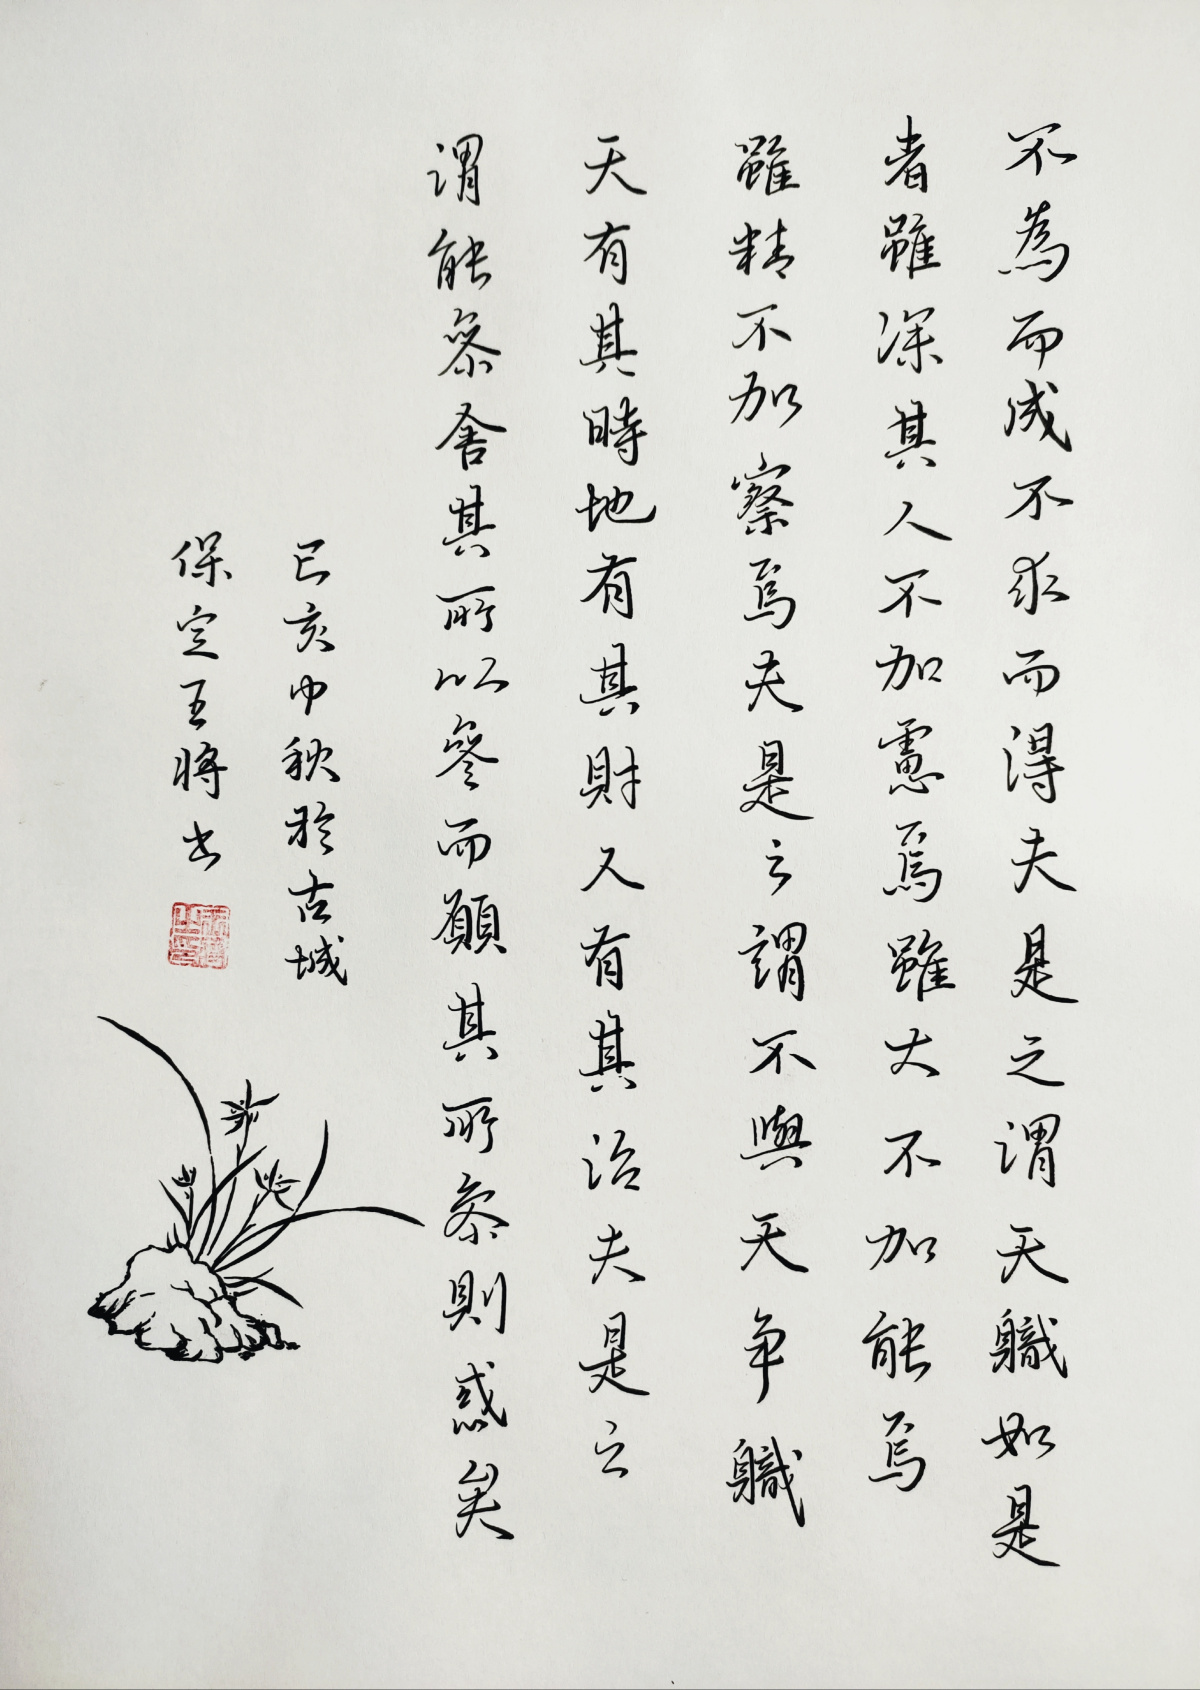 不為而成不求而得夫是之谓天職如是
者雖深其人不加慮焉雖大不加能焉
雖精不加察焉夫是之謂不與天争職
天有其時地有其財又有其治夫是之
谓能参舍其所以參而願其所参則惑矣
己亥中秋於古城
保定王將书